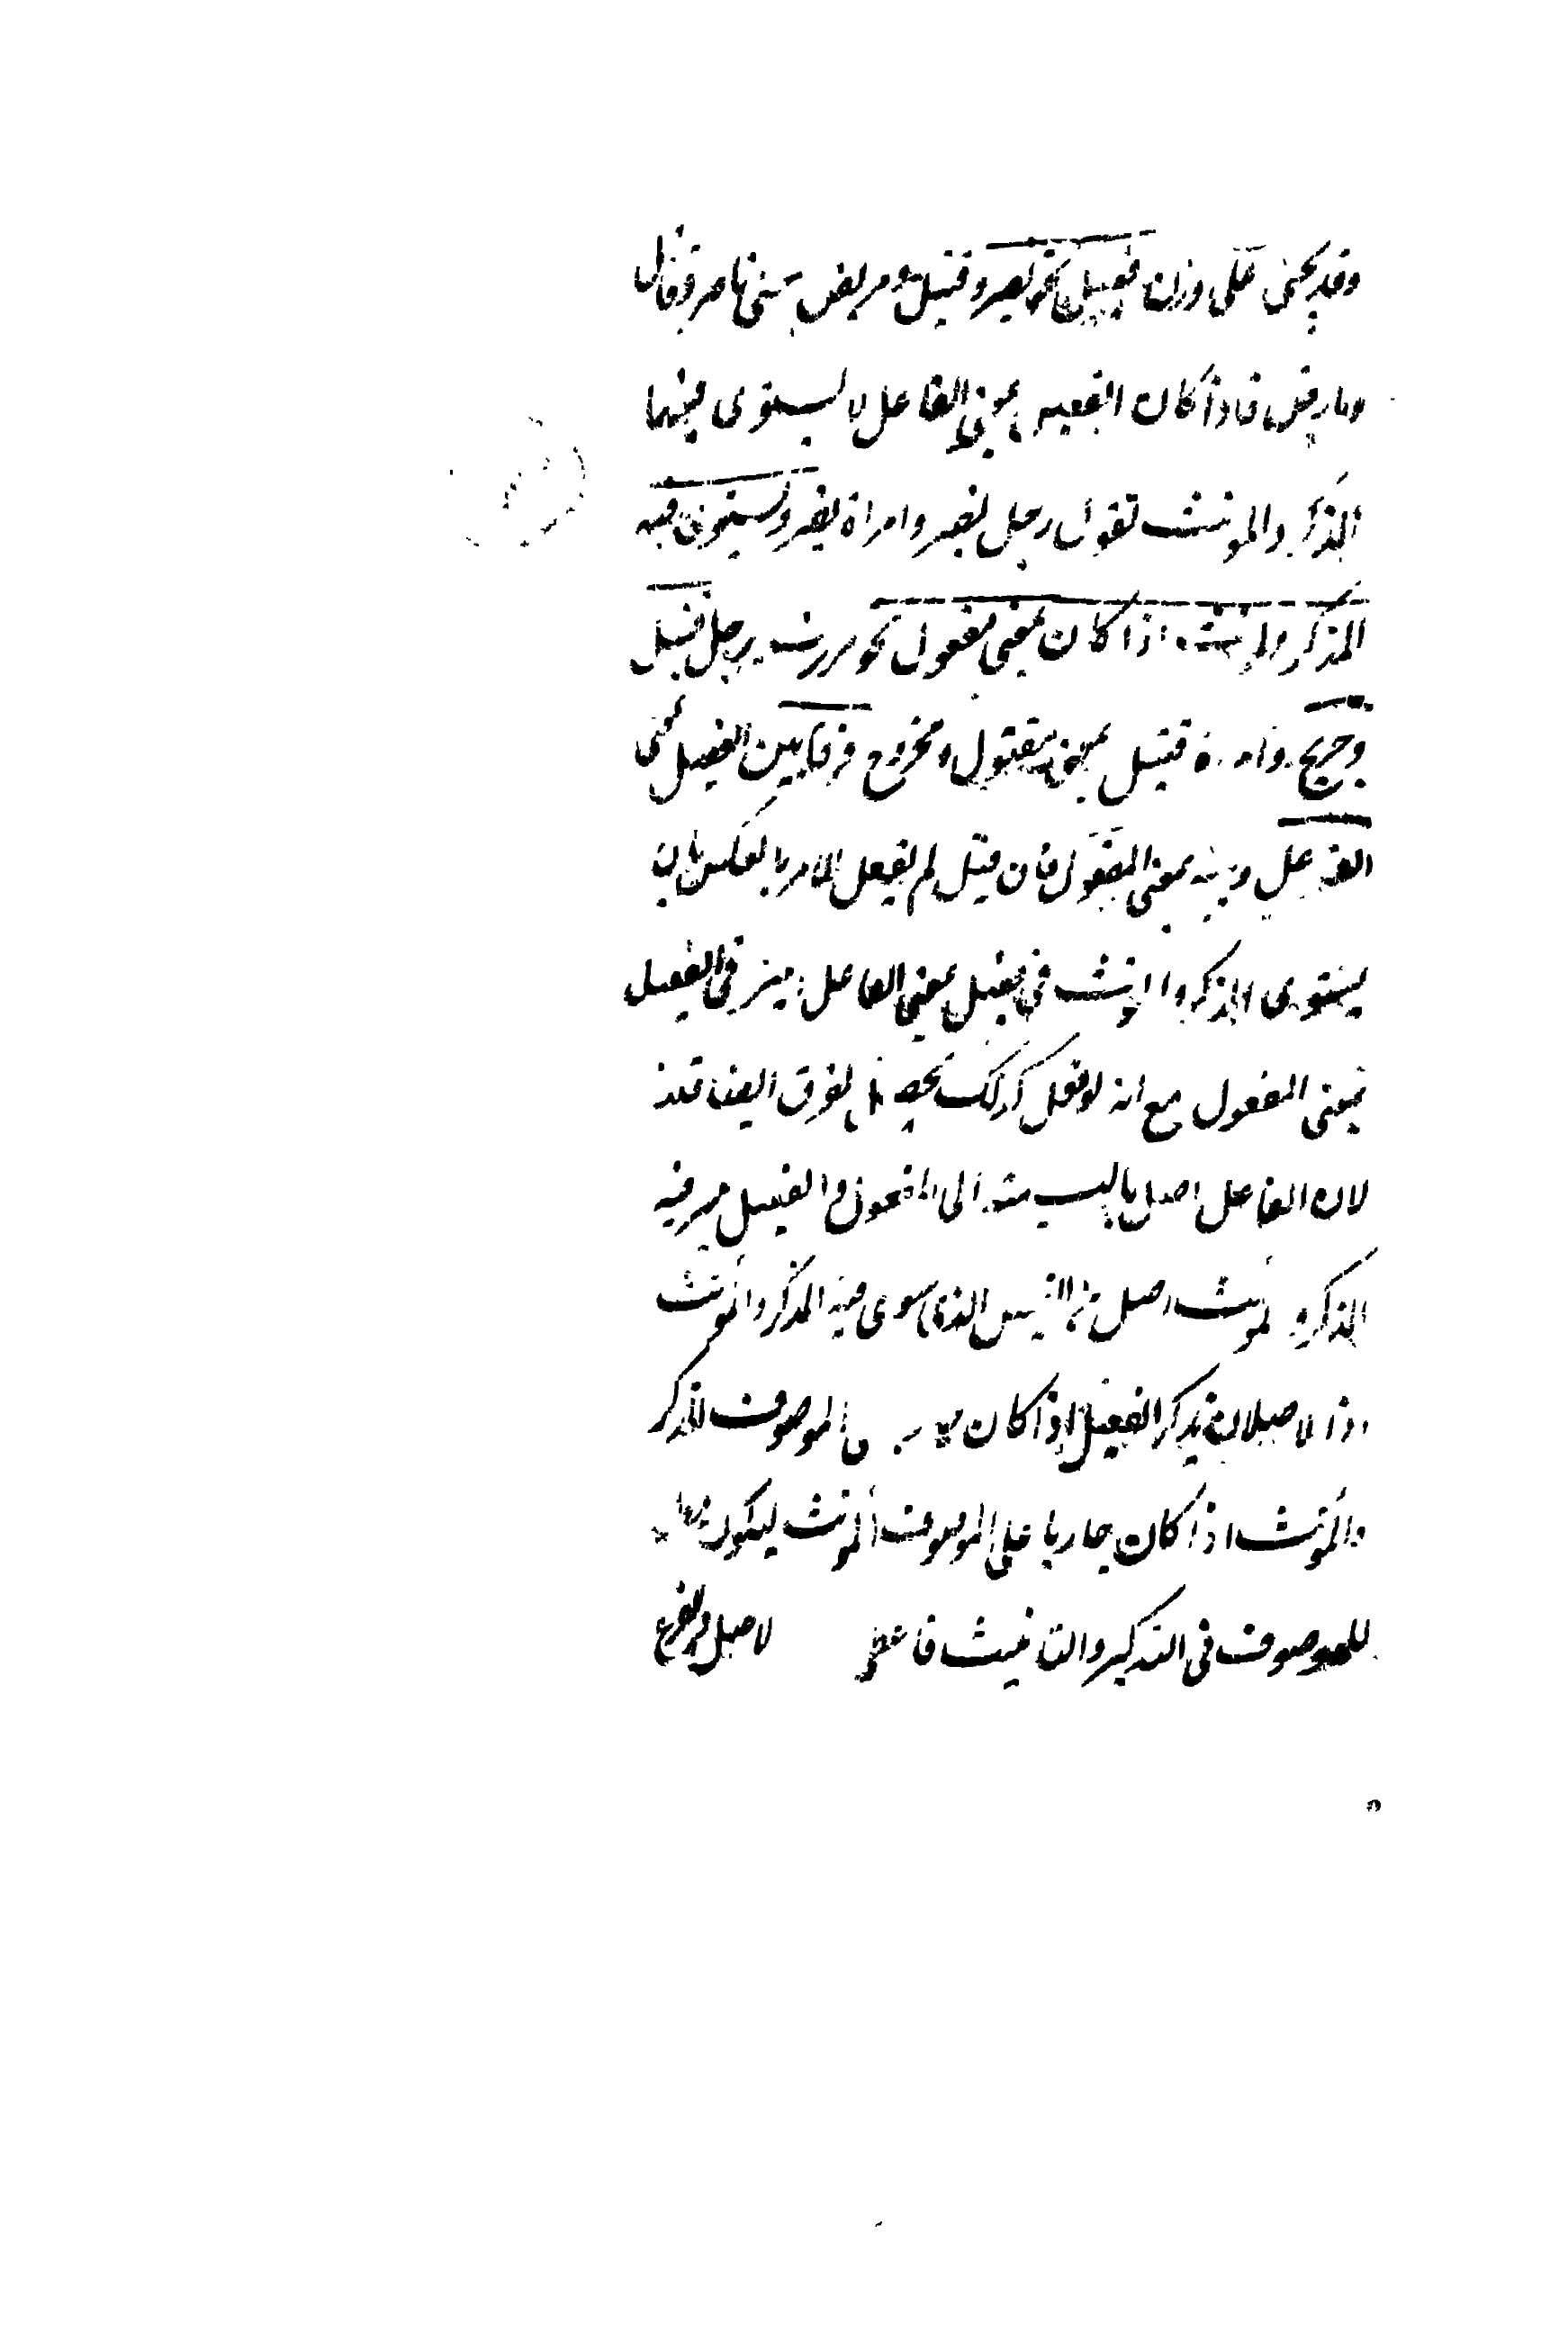 وقد يجئ على وزن فعيل نحو نصير وقتيل ومريض بمعنى ناصر وقاتل
ومارض فاذا كان الفعيل بمعنى الفاعل لا يستوى فيها
المذكر والمونث تقول رجل نصير وامراة نصير ويستوى فيه
المذكر والمونث اذا كان بمعنى مفعول نحو مررت برجل قتيل
وجريح وامراة قتيل بمعنى مقتول ومجروح فرقا بين الفعيل بمعنى
الفاعل وبينه بمعنى المفعول فان قيل لم لم يفعل الامر بالعكس بان
يستوى المذكر والمونث في فعيل بمعنى الفاعل ميز في الفعيل
بمعنى المفعول مع انه لو فعل كذلك يحصل الفرق ايضا قلنا
لان الفاعل اصل بالنسبة الى المفعول والفعيل ميز فيه
المذكر والمونث اصل من الفعيل الذى سوى فيه المذكر والمونث
اذا الاصل ان يذكر الفعيل اذا كان الموصوف المذكر
والمونث اذا كان جاريا على الموصوف المونث ليكون
للموصوف في التذكير والتانيث فاعطى الاصل والفرع